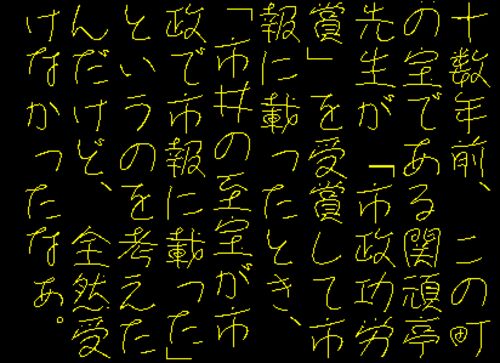 十数年前、この町
の宝である関頑亭
先生が「市政功労
賞」を受賞して市
報に載ったとき、
「市井の至宝が市
政で市報に載った」
というのを考えた
んだけど、全然受
けなかったなぁ。